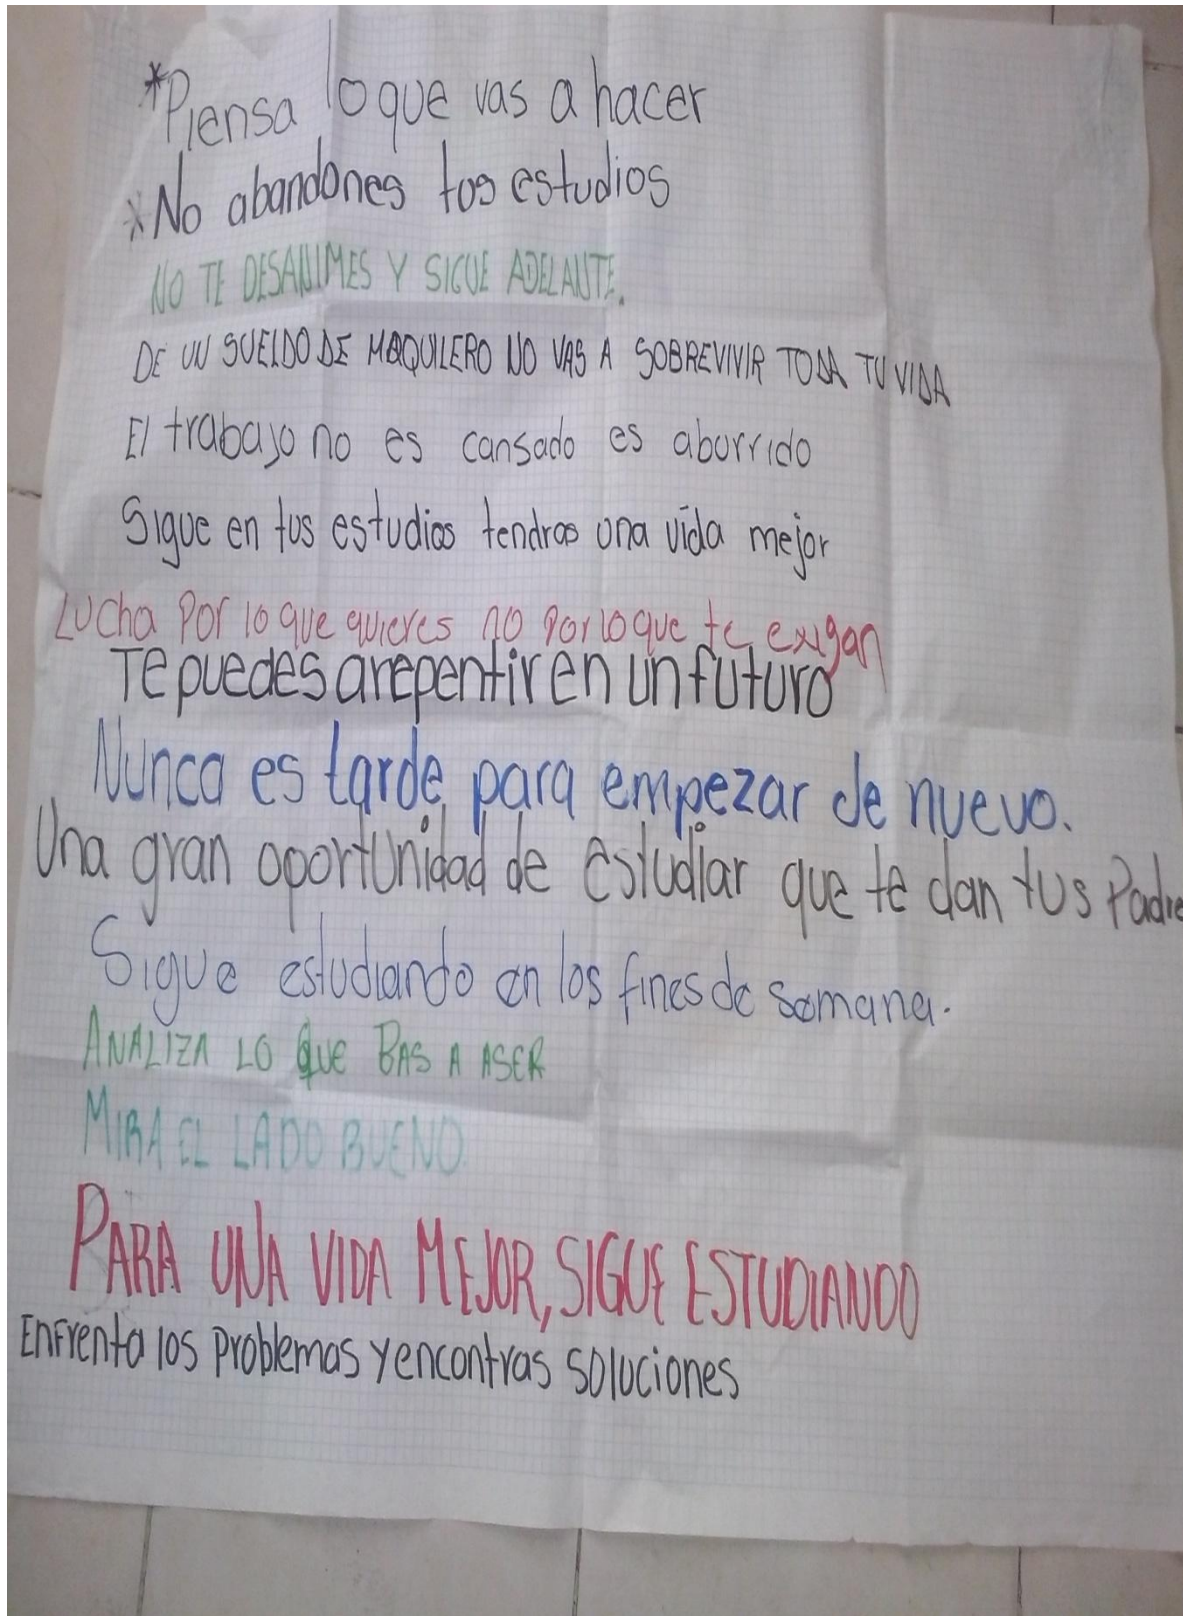 *Piensa lo que vas a hacer
*No abandones tus estudios
NO TE DESANIMES Y SIGUE ADELANTE.
DE UN SUELDO DE MAQUILERO NO VAS A SOBREVIVIR TODA TU VIDA
El trabajo no es cansado es aburrido
Sigue en tus estudios tendras una vida mejor
Lucha Por lo que quieres no por lo que te exigan
Te puedes arepentir en un futuro
Nunca es tarde para empezar de nuevo.
Una gran oportunidad de estudiar que te dan tus Padre
Sigue estudiando en los fines de semana.
ANALIZA LO QUE BAS A ASER
MIRA EL LADO BUENO
PARA UNA VIDA MEJOR, SIGUE ESTUDIANDO
Enfrenta los problemas y encontras soluciones